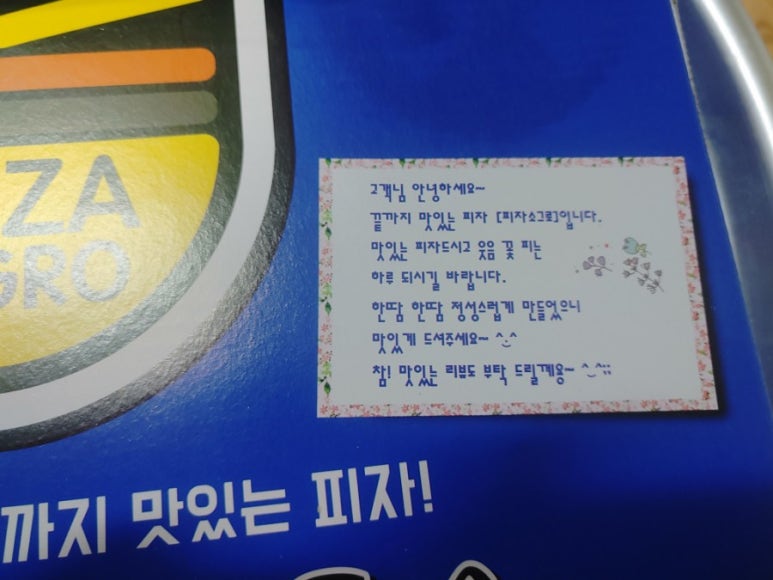 ZA
GRO
고객님 안녕하세요~
끝까지 맛있는 피자 [피자소그로]입니다.
맛있는 피자드시고 웃음 꽃 피는
하루 되시길 바랍니다.
한땀 한땀 정성스럽게 만들었으니
맛있게 드셔주세요~ ^_^
참! 맛있는 리뷰도 부탁 드릴게용~ ^_^;;
까지 맛있는 피자!